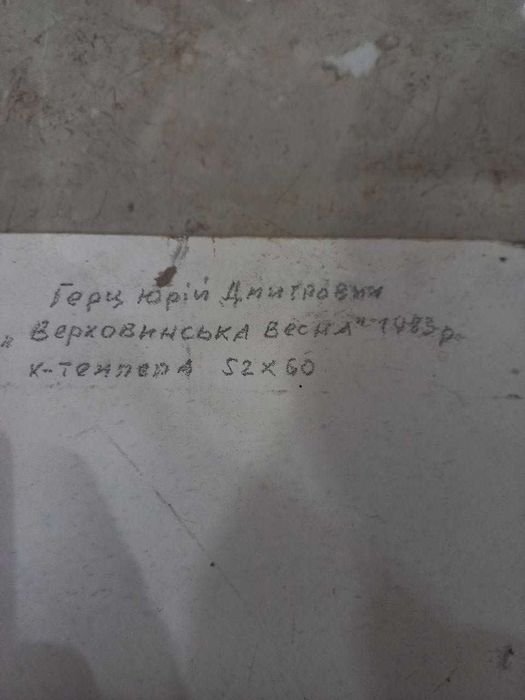 Герц Юрій Дмитрович
"Верховинська весна" 1983 р.
к-темпера 52x60